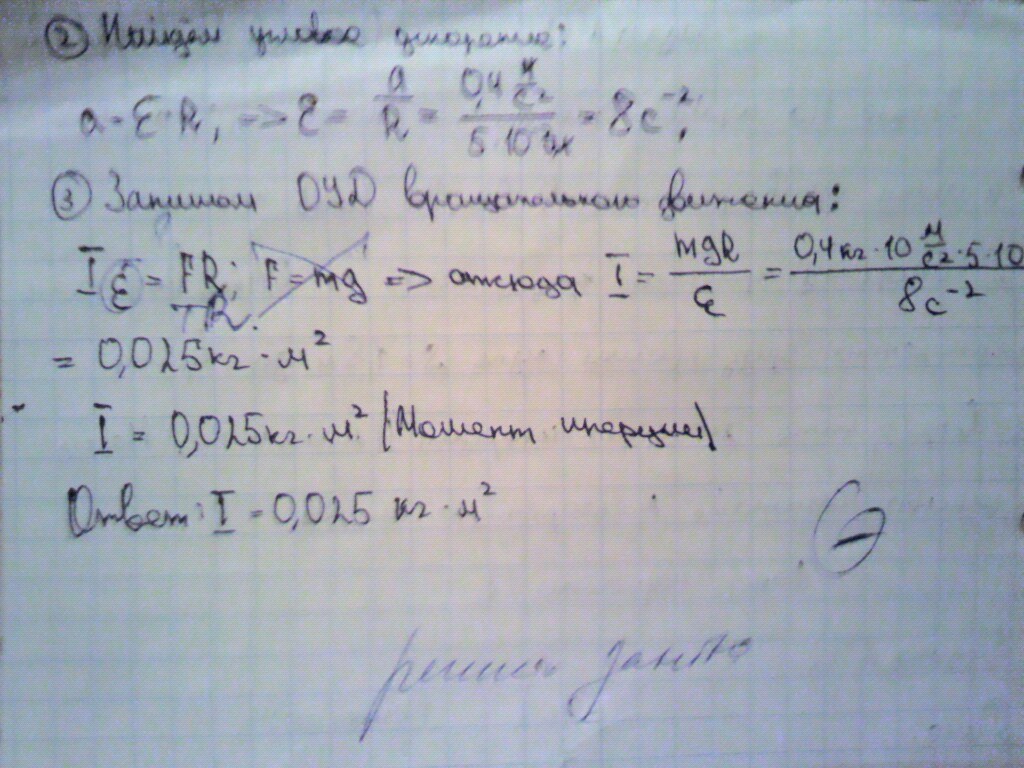 ② Найдём угловое ускорение:
a = ε · R, => ε = a/R = 0,4 м/с² / 5·10⁻² м = 8с⁻²;
③ Запишем ОУД вращательного движения:
Iε = FR; F = mg => отсюда I = mgR/ε = 0,4кг·10 м/с²·5·10 / 8с⁻²
TR.
= 0,025кг·м²
I = 0,025кг·м² (Момент инерции)
Ответ: I = 0,025 кг·м²